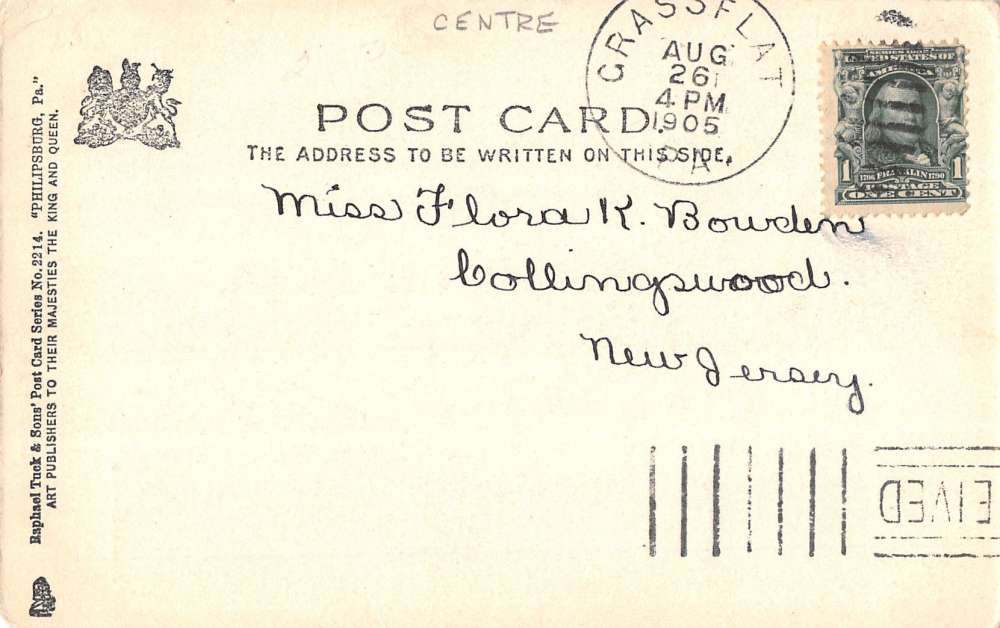 CENTRE
GRASSFLAT
AUG
26
4 PM
1905
PA.
POST CARD.
THE ADDRESS TO BE WRITTEN ON THIS SIDE.
SERIES 1902
UNITED STATES OF
AMERICA
1 1790 FRANKLIN 1790 1
POSTAGE
ONE CENT
Miss Flora K. Bowden
Collingswood.
New Jersey.
EIVED
Raphael Tuck & Sons' Post Card Series No. 2214. "PHILIPSBURG, Pa."
ART PUBLISHERS TO THEIR MAJESTIES THE KING AND QUEEN.